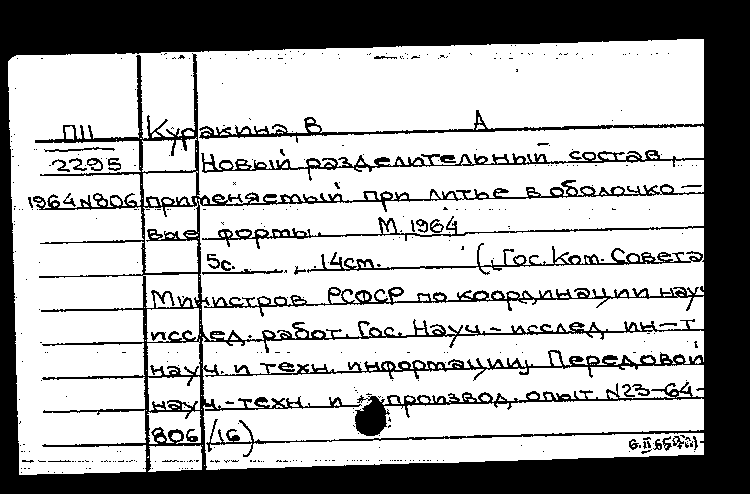 П11 Куракина, В А
2295 Новый разделительный состав,
1964 N806 применяемый при литье в оболочко-
вые формы. М, 1964
5с. , 14см. (Гос. Ком. Совета
Министров РСФСР по координации науч
исслед. работ. Гос. Науч.- исслед. ин-т
науч. и техн. информации. Передовой
науч.-техн. и производ. опыт. N23-64-
806/16).